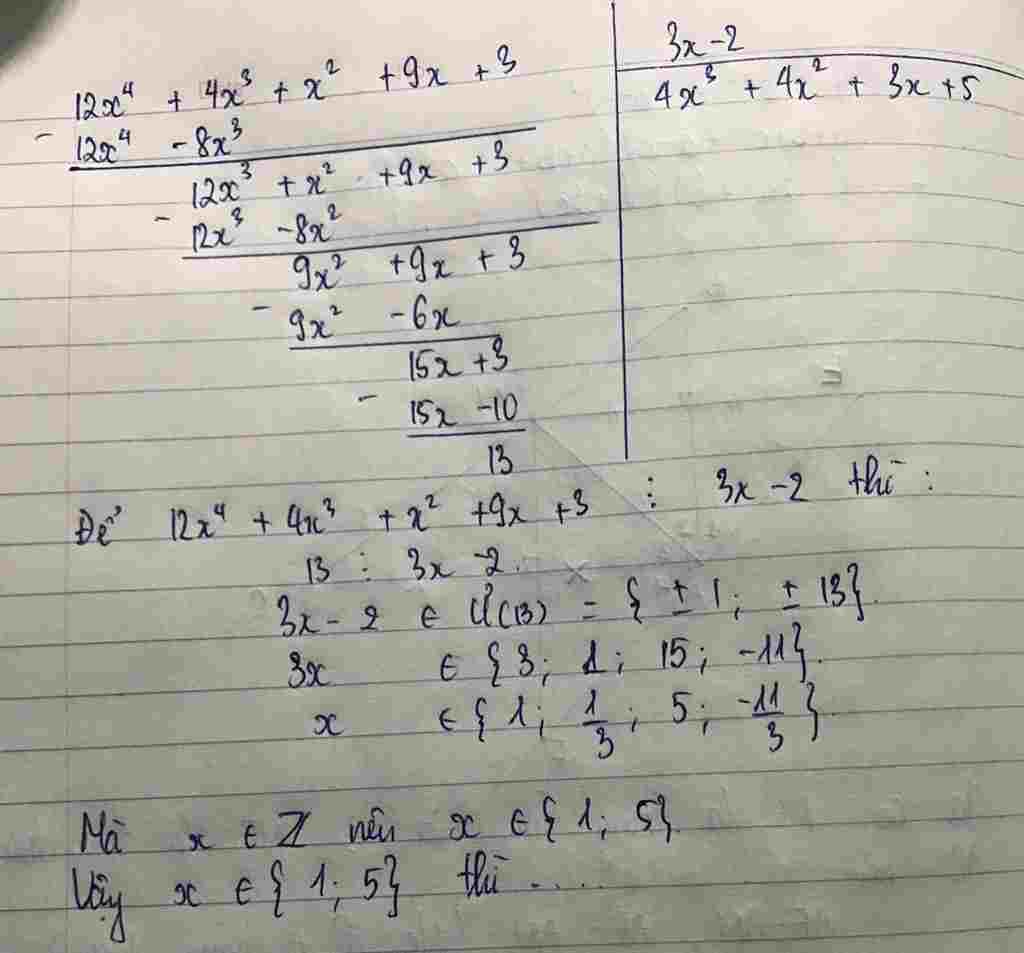 12x⁴ + 4x³ + x² + 9x + 3 | 3x - 2
- 12x⁴ - 8x³ | 4x³ + 4x² + 3x + 5
12x³ + x² + 9x + 3
- 12x³ - 8x²
9x² + 9x + 3
- 9x² - 6x
15x + 3
- 15x - 10
13
Để 12x⁴ + 4x³ + x² + 9x + 3 ⋮ 3x - 2 thì :
13 ⋮ 3x - 2.
3x - 2 ∈ Ư(13) = { ± 1 ; ± 13}.
3x ∈ { 3 ; 1 ; 15 ; -11}.
x ∈ { 1 ; 1/3 ; 5 ; -11/3 }.
Mà x ∈ Z nên x ∈ { 1 ; 5}
Vậy x ∈ { 1 ; 5} thì .....